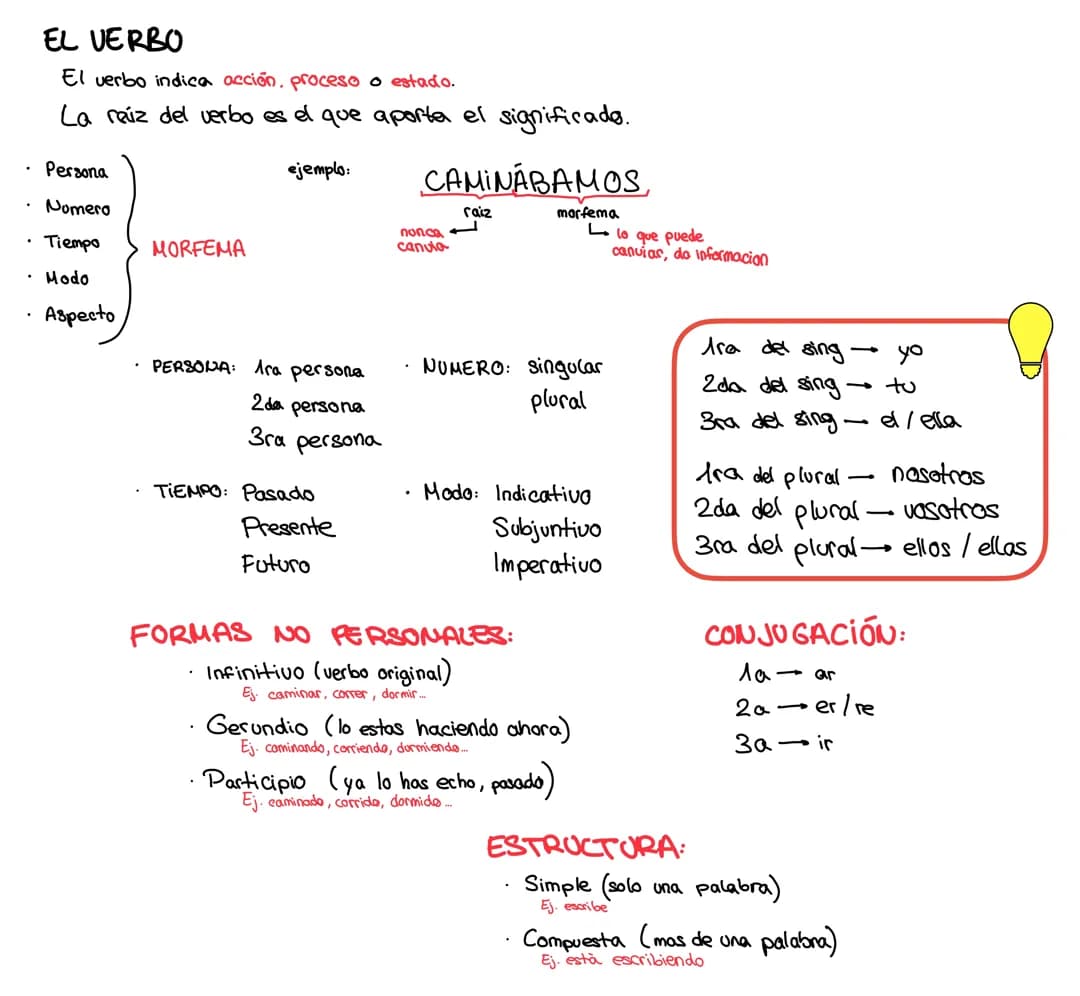 EL VERBO
El verbo indica acción, proceso o estado.
La raíz del verbo es el que aporta el significado.
· Persona
· Nomero
· Tiempo
· Modo
· Aspecto
MORFEMA
ejemplo:
CAMINÁBAMOS
raiz
morfema
nunca
canvia
lo que puede
canviar, da informacion
· PERSONA: 1ra persona
2da persona
3ra persona
· NUMERO: singular
plural
· TIEMPO: Pasado
Presente
Futuro
· Modo: Indicativo
Subjuntivo
Imperativo
1ra del sing → yo
2da del sing → tu
3ra del sing — el / ella
1ra del plural — nosotros
2da del plural — vosotros
3ra del plural → ellos / ellas
FORMAS NO PERSONALES:
· Infinitivo (verbo original)
Ej. caminar, correr, dormir...
· Gerundio (lo estas haciendo ahora)
Ej. caminando, corriendo, durmiendo...
· Participio (ya lo has echo, pasado)
Ej. caminado, corrido, dormido...
CONJUGACIÓN:
1a → ar
2a → er / re
3a → ir
ESTRUCTURA:
· Simple (solo una palabra)
Ej. escribe
· Compuesta (mas de una palabra)
Ej. està escribiendo